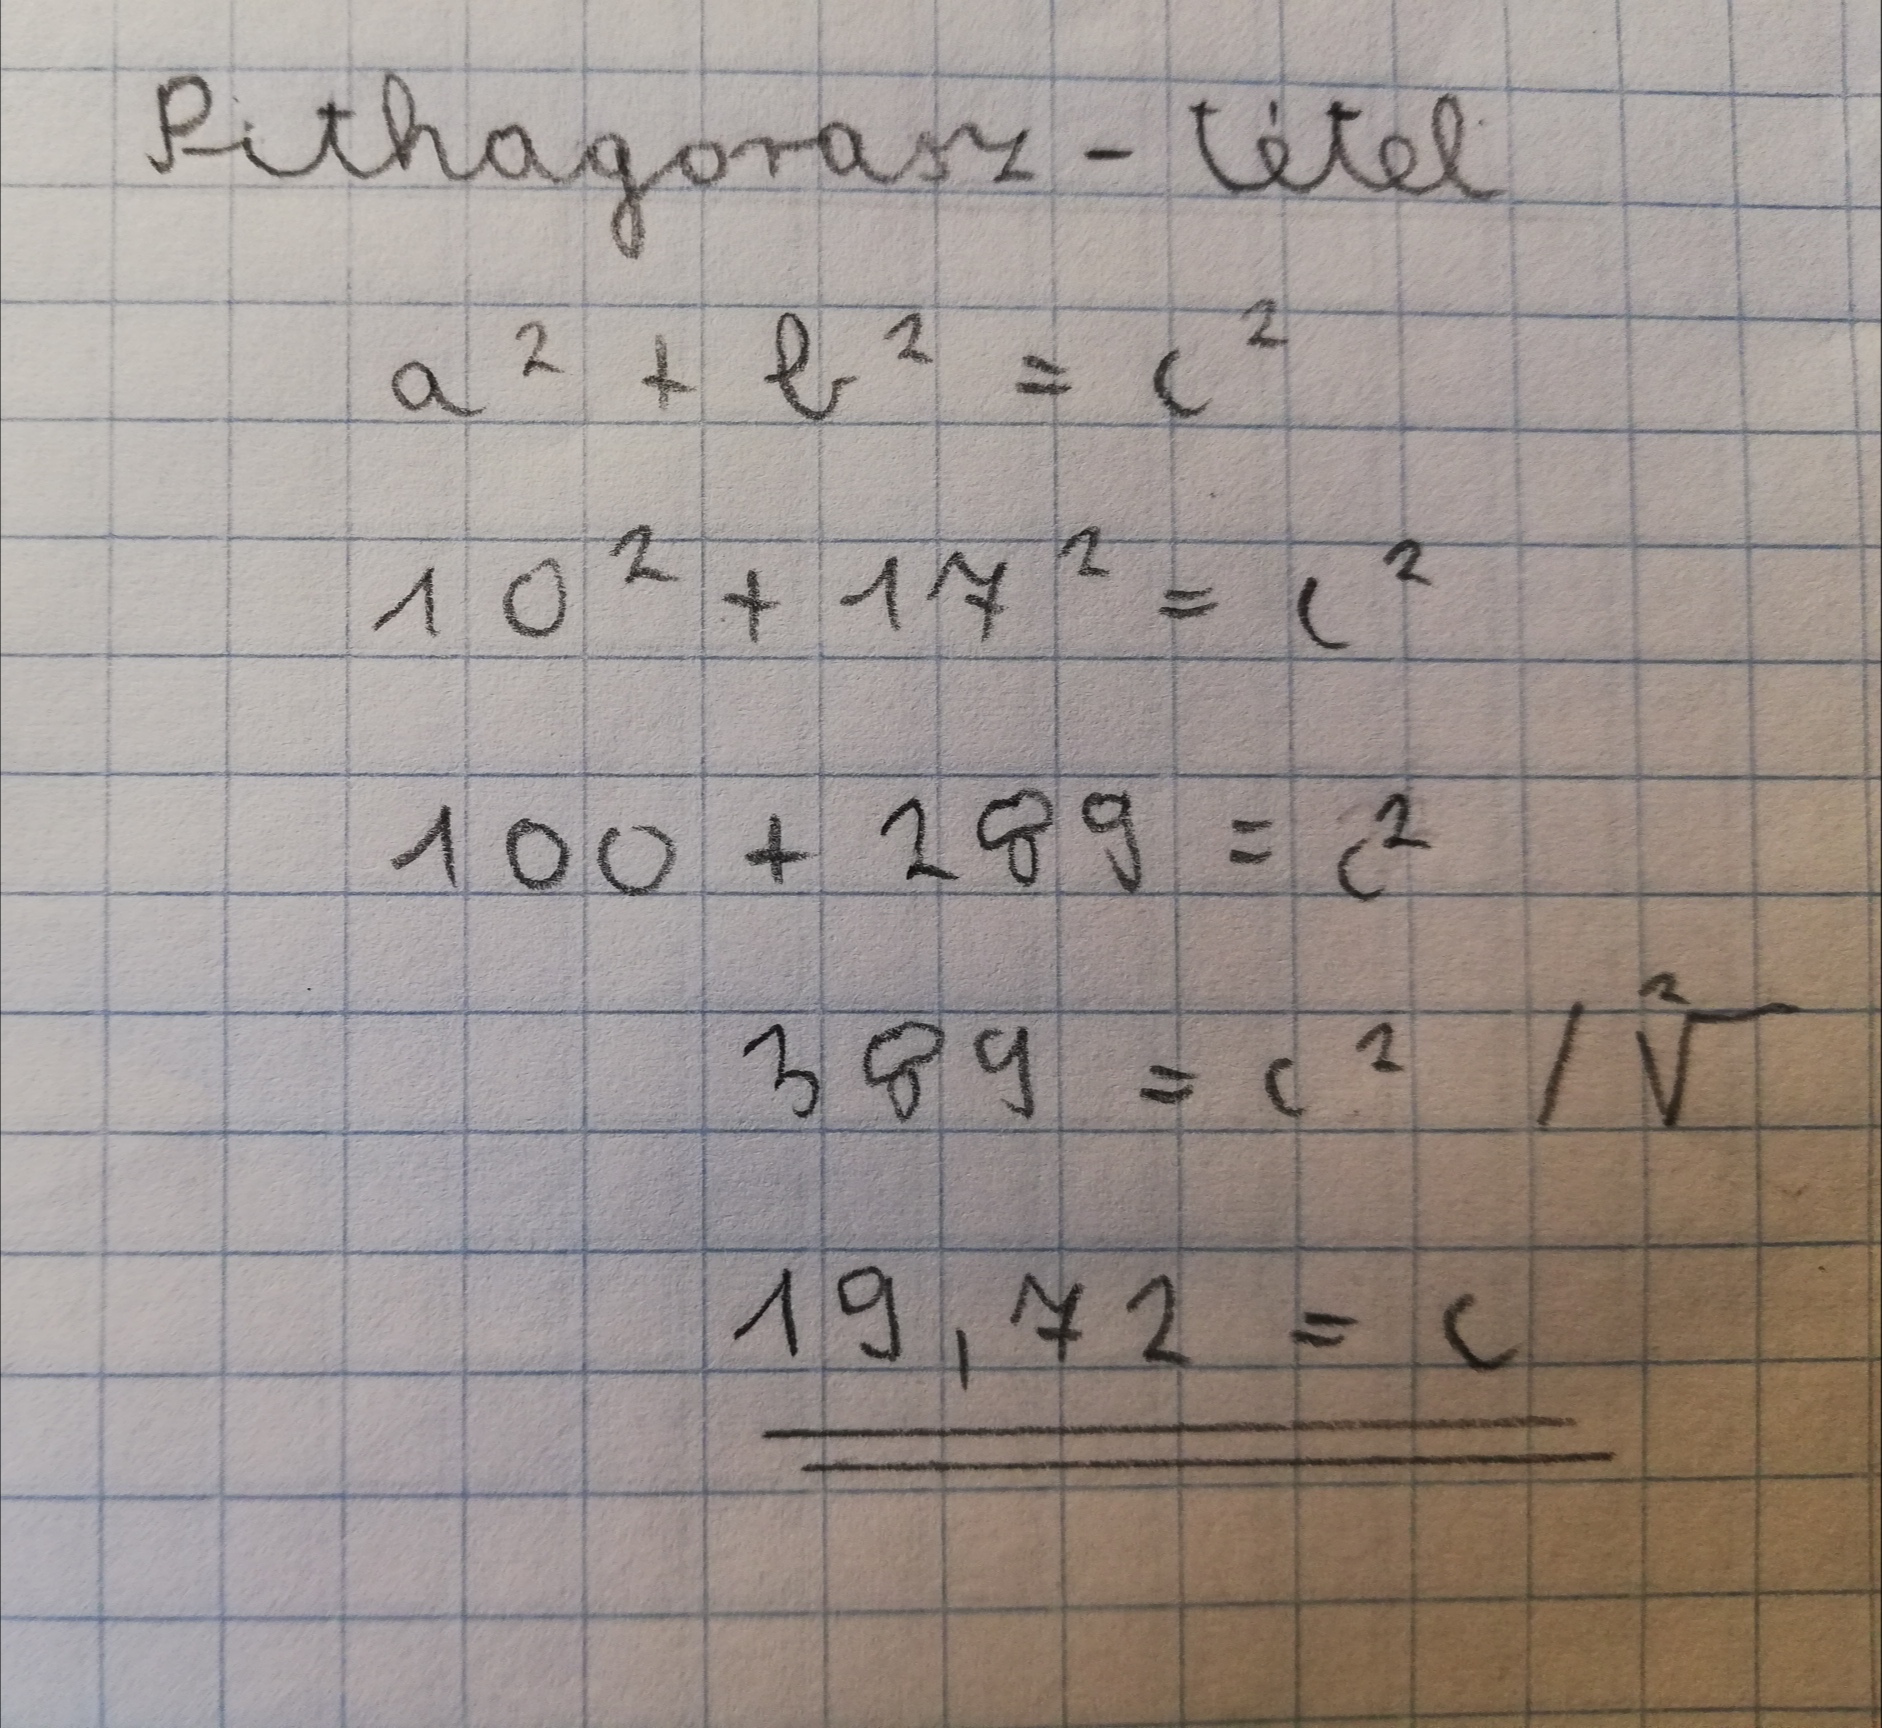 Pithagorasz - tétel
a² + b² = c²
10² + 17² = c²
100 + 289 = c²
389 = c² / ²√
19,72 = c